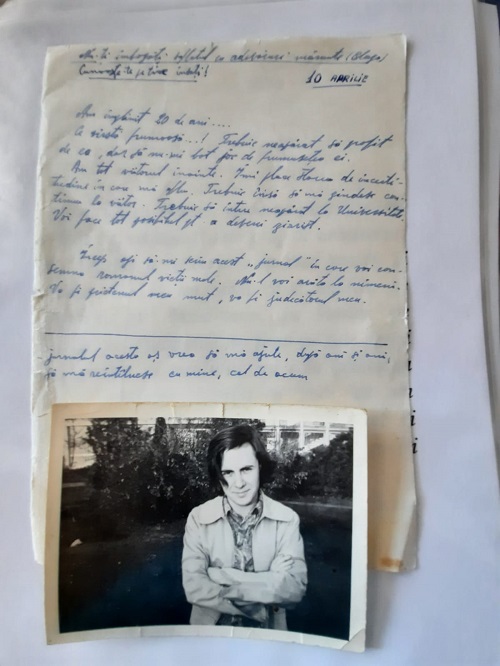 Nu-ți îmbogăți sufletul cu adevăruri mărunte (Blaga)
Cunoaște-te pe tine însuți!
10 APRILIE
Am împlinit 20 de ani....
Ce vârstă frumoasă...! Trebuie neapărat să profit
de ea, dar să nu-mi bat joc de frumusețea ei.
Am tot viitorul înainte. Îmi place starea de incerti-
tudine în care mă aflu. Trebuie însă să mă gîndesc con-
tinuu la viitor. Trebuie să intru neapărat la Universitate.
Voi face tot posibilul pt. a deveni ziarist.
Încep azi să-mi scriu acest „jurnal" în care voi con-
semna romanul vieții mele. Nu-l voi arăta la nimeni.
Va fi prietenul meu mut, va fi judecătorul meu.
jurnalul acesta aș vrea să mă ajute, după ani și ani,
să mă reîntîlnesc cu mine, cel de acum